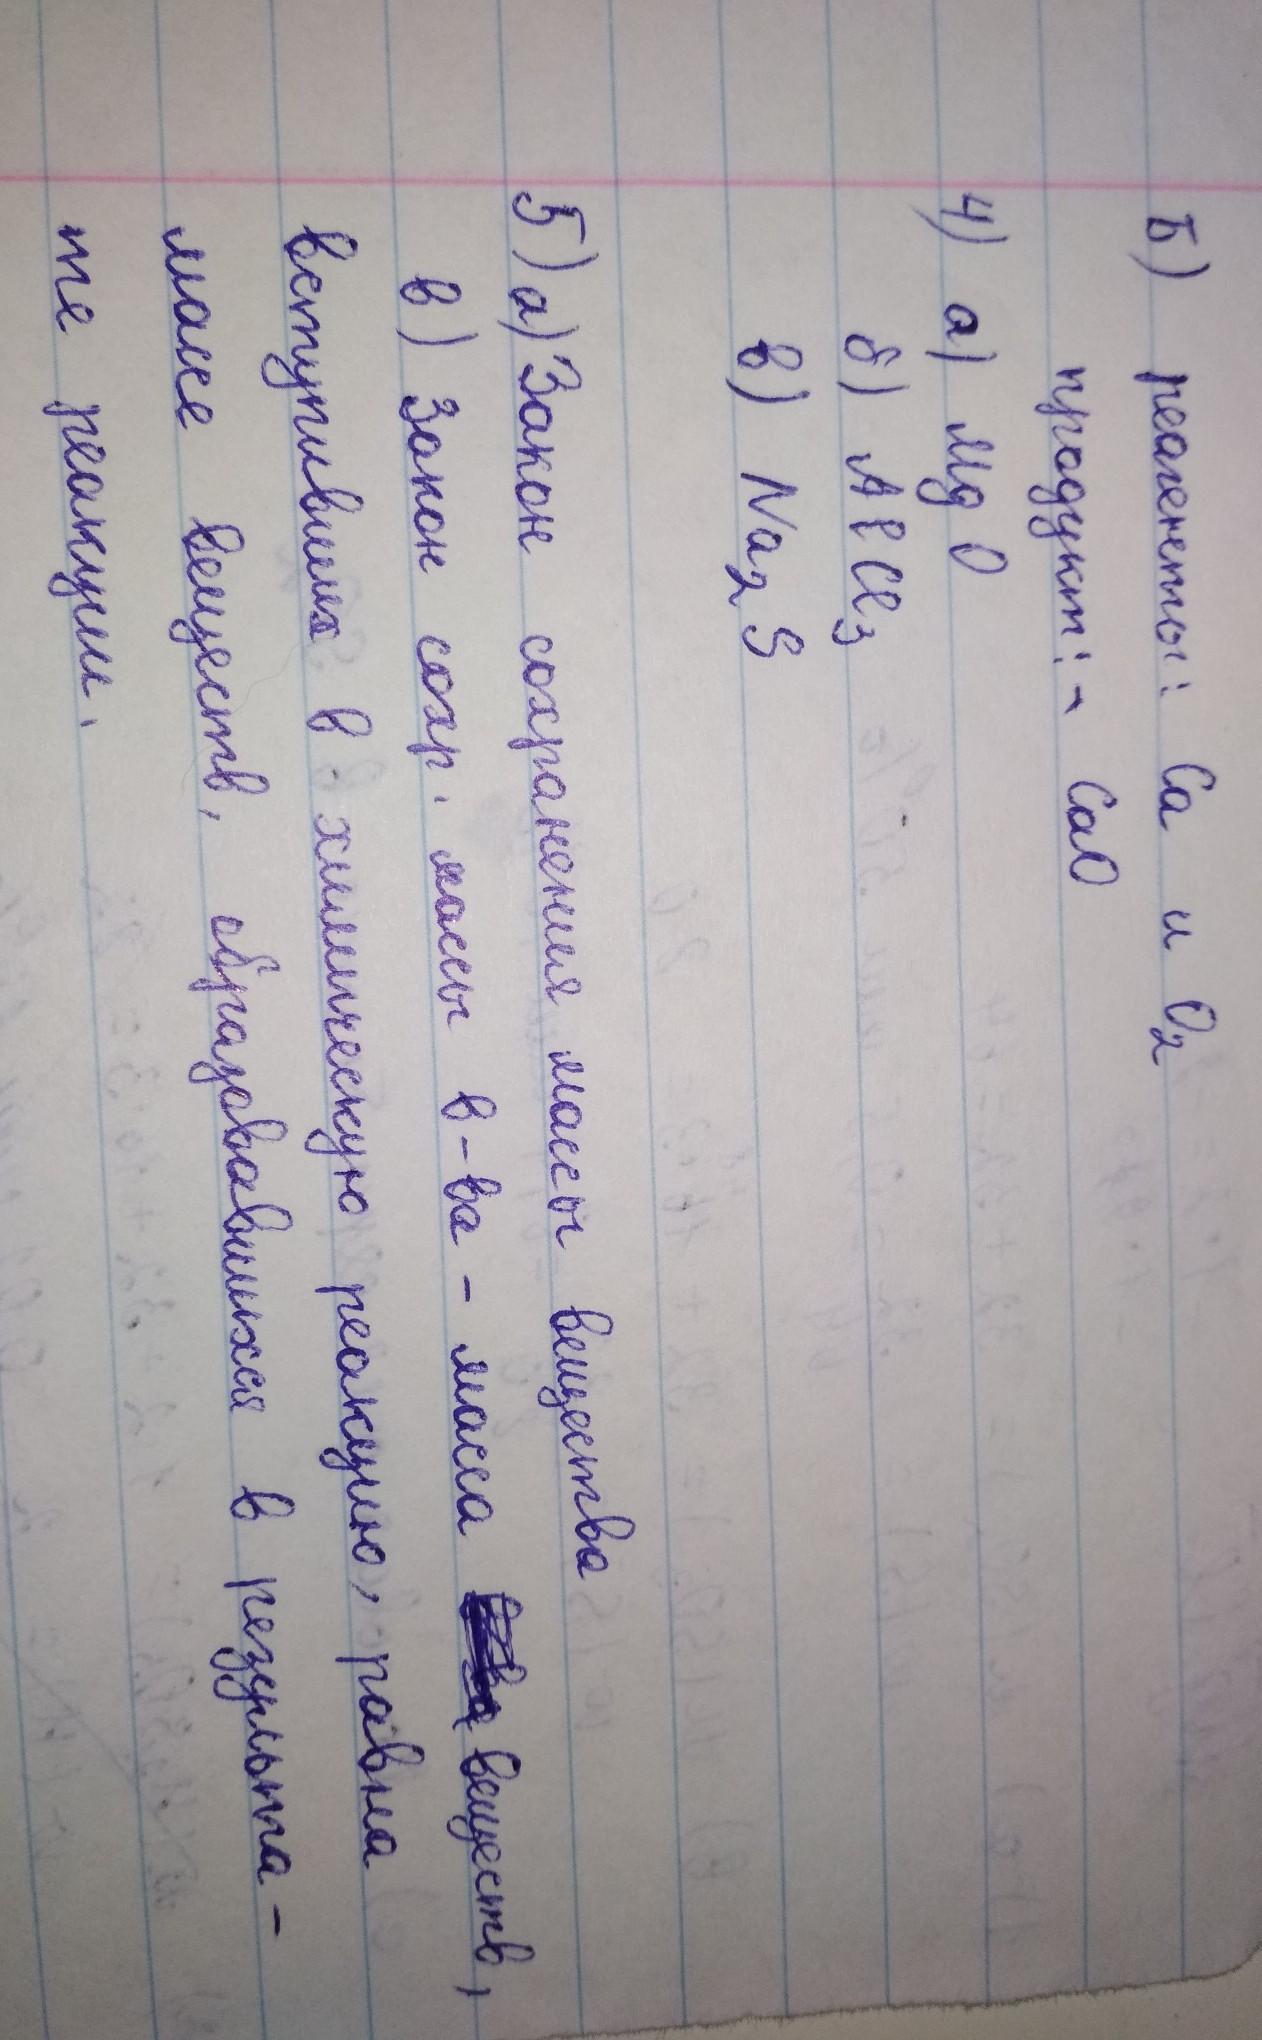 Б) реагенты: Ca и O2
продукт: - CaO
4) а) MgO
б) AlCl3
в) Na2S
5) а) Закон сохранения массы вещества
в) Закон сохр. массы в-ва - масса веществ,
вступивших в химическую реакцию, равна
массе веществ, образовавшихся в результа-
те реакции.